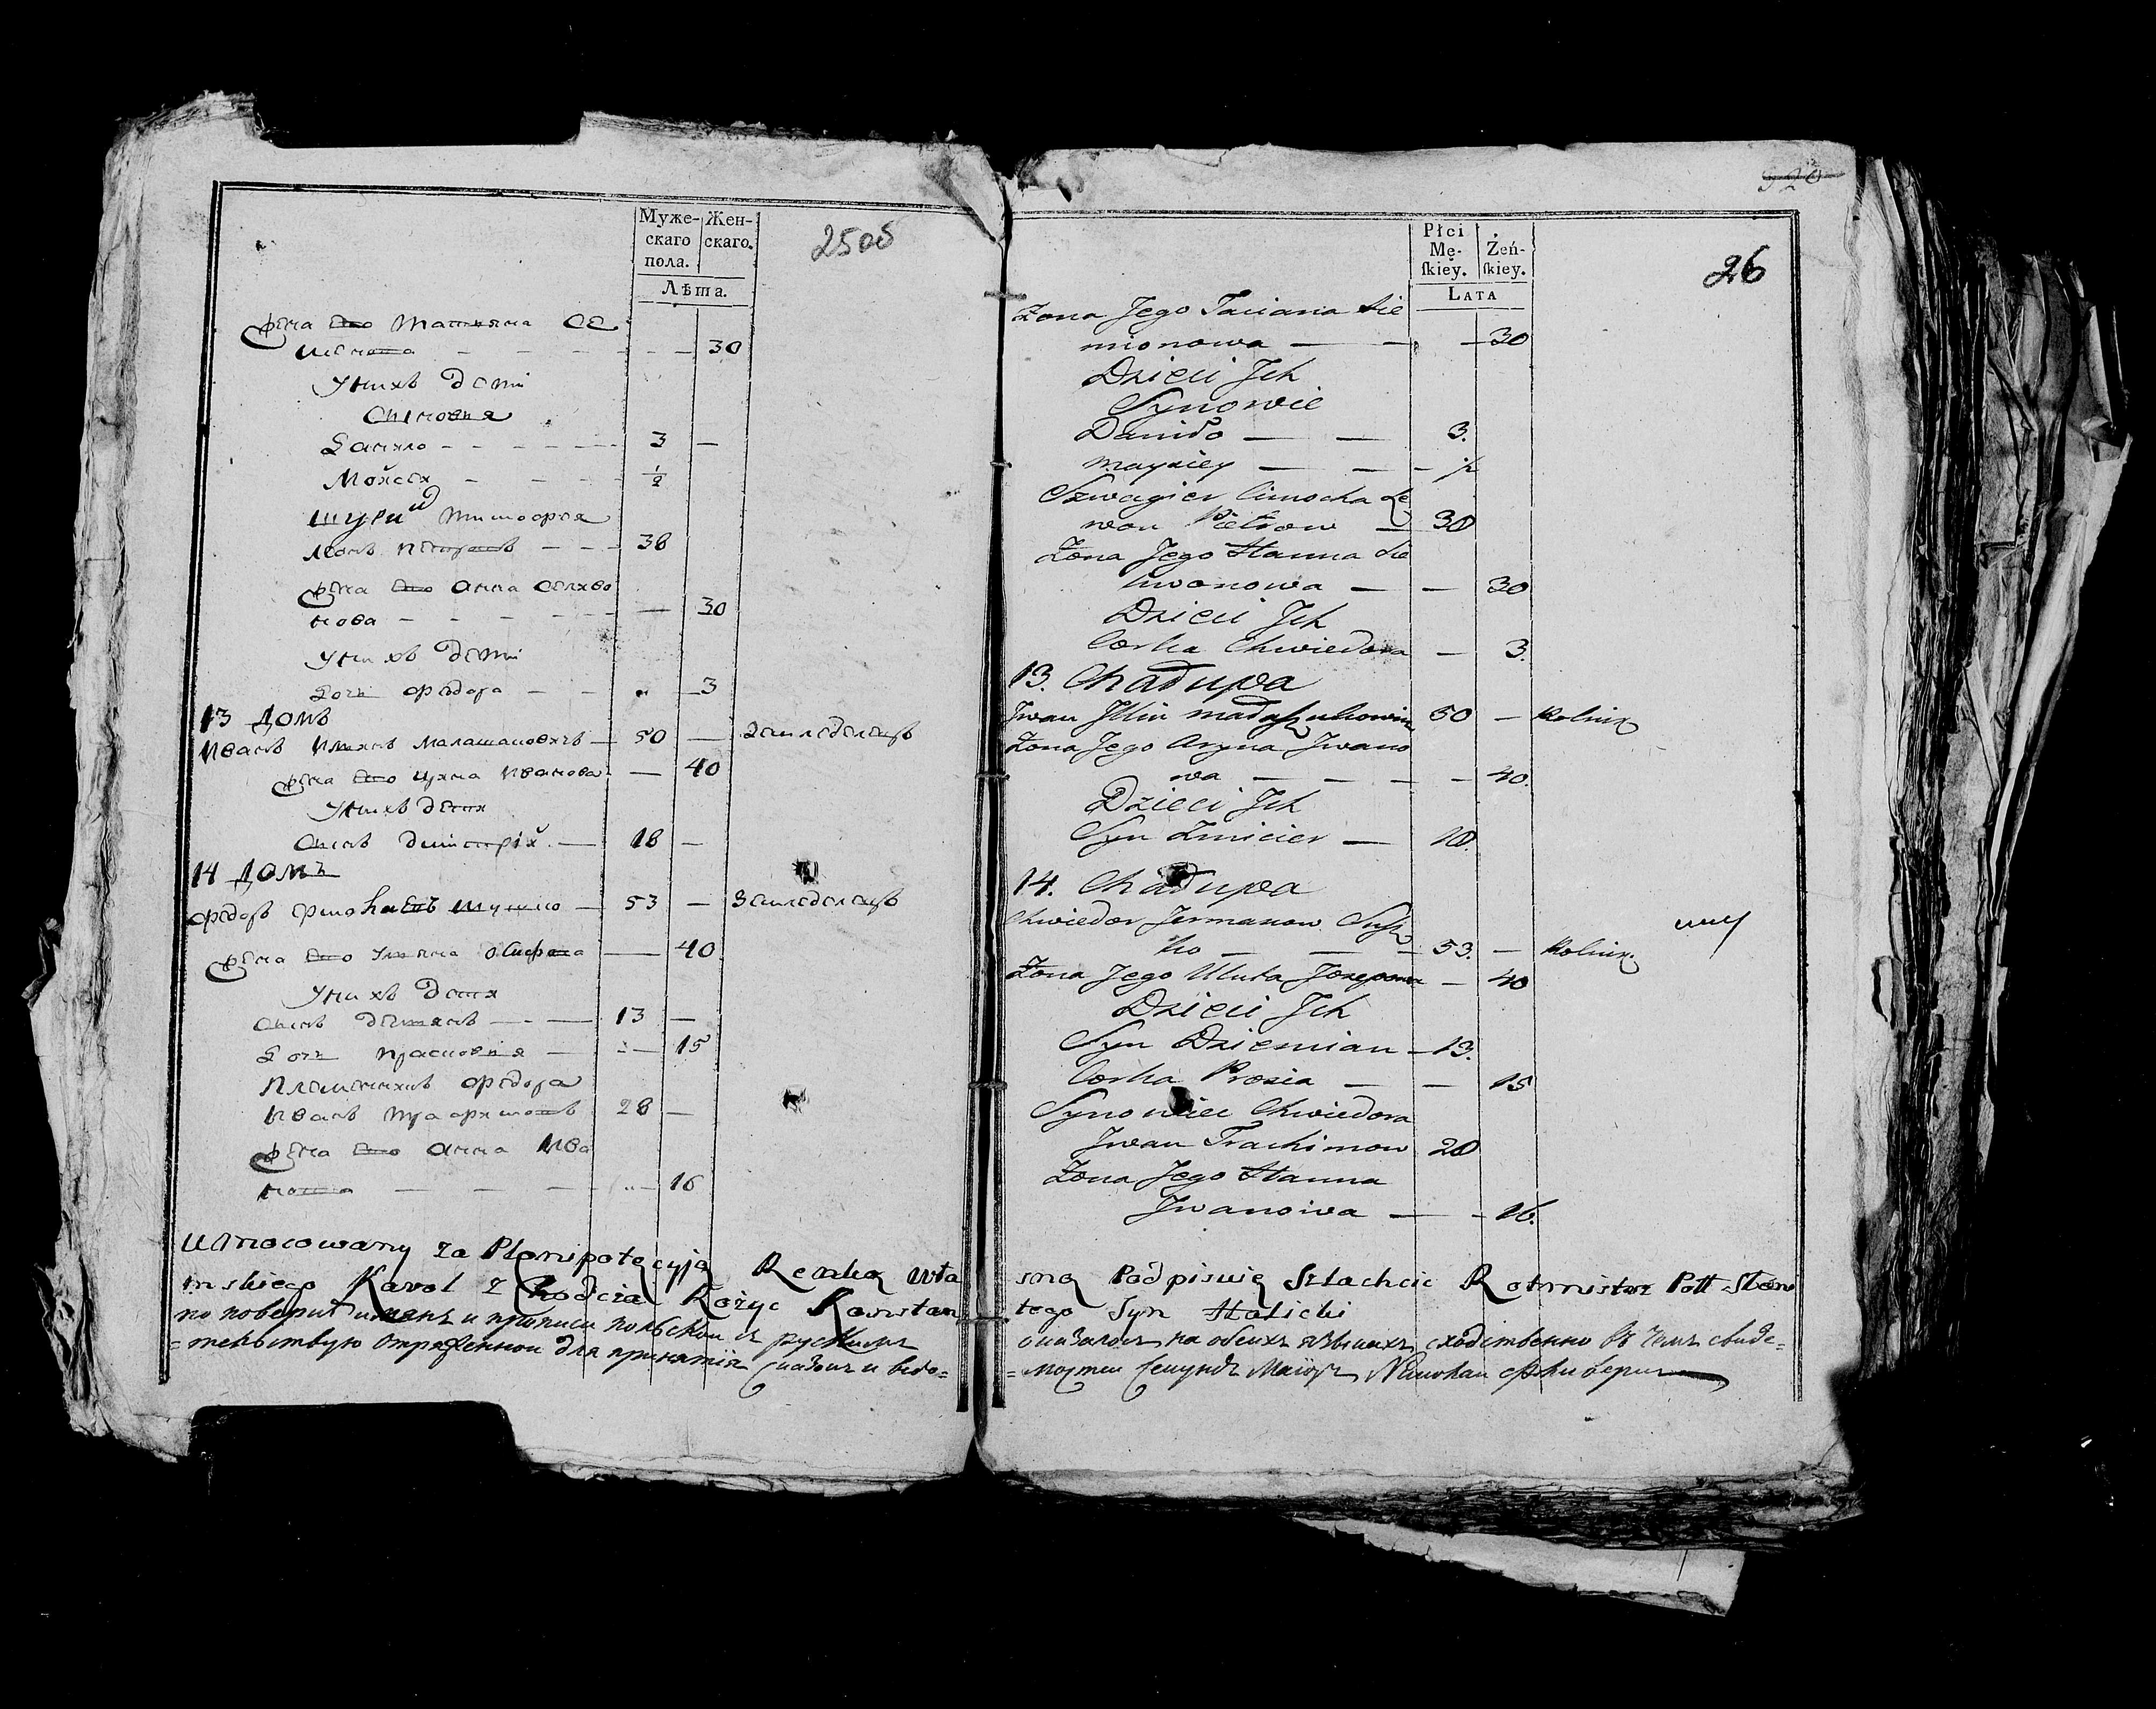 Муже-
скаго
пола.
Жен-
скаго.
Лѣта.
25об
жена его Татьяна Се
менова - - - - - 30
У них дети
Сыновья
Данило - - - - - 3 —
Мойсей - - - - ½
Шурин Тимофея
Леонъ Петровъ - - - 38
жена его Анна Селиво
нова - - - - — 30
У них дети
Дочь Федора - - - 3
13 Домъ
Иванъ Ильинъ — 50 — Земледелецъ
жена его Ирина Иванова — 40
У них дети
Сынъ Дмитрій — 18 —
14 Домъ
Федоръ — 53 — Земледелецъ
жена его Ульяна — 40
У них дети
Сынъ Демянъ - - — 13 —
Дочь Прасковья — - — 15
Племянникъ Федора
Иванъ Трофимовъ 28 —
жена его Анна Ива
нова — — — — 16
Umocowany za Plenipotecyją Renką wła
inskiego Karol z Chodcza Kożyc Konstan
по поверит и прописи польском с руским
= тельствую отряженной для принятія сказокъ и ведо=
Płci
Mę-
ſkiey.
Żeń-
ſkiey.
Lata
320
26
Zona Jego Taciana Sie
mionowa — — — 30
Dzieci Jch
Synowie
Daniło — — 3.
Mayziey — — - ½
Szwagier Cimocha Le
won Pietrow — 38
Zona Jego Hanna Sie
liwonowa — — 30
Dzieci Jch
Corka Chwiedora — 3.
13. Chałupa
Jwan Jllin 50 — Rolnik
Zona Jego Aryna Jwano
wa — — — — 40.
Dzieci Jch
Syn Zmicier — 18.
14. Chałupa
Chwiedor Jermanow Susz
ko — — — 53. — Rolnik.
Zona Jego Uluta Jozepowa — 40
Dzieci Jch
Syn Dziemian — 13.
Corka Prosia — — 15
Synowiec Chwiedora
Jwan Trachimow 28
Zona Jego Hanna
Jwanowa — — 16.
sną Podpisuię Szlachcic Rotmistrz Pott
tego Syn Halicki
сказалось на обеихъ языкахъ сходственно въ чемъ свиде=
= мостей секундъ Маіоръ